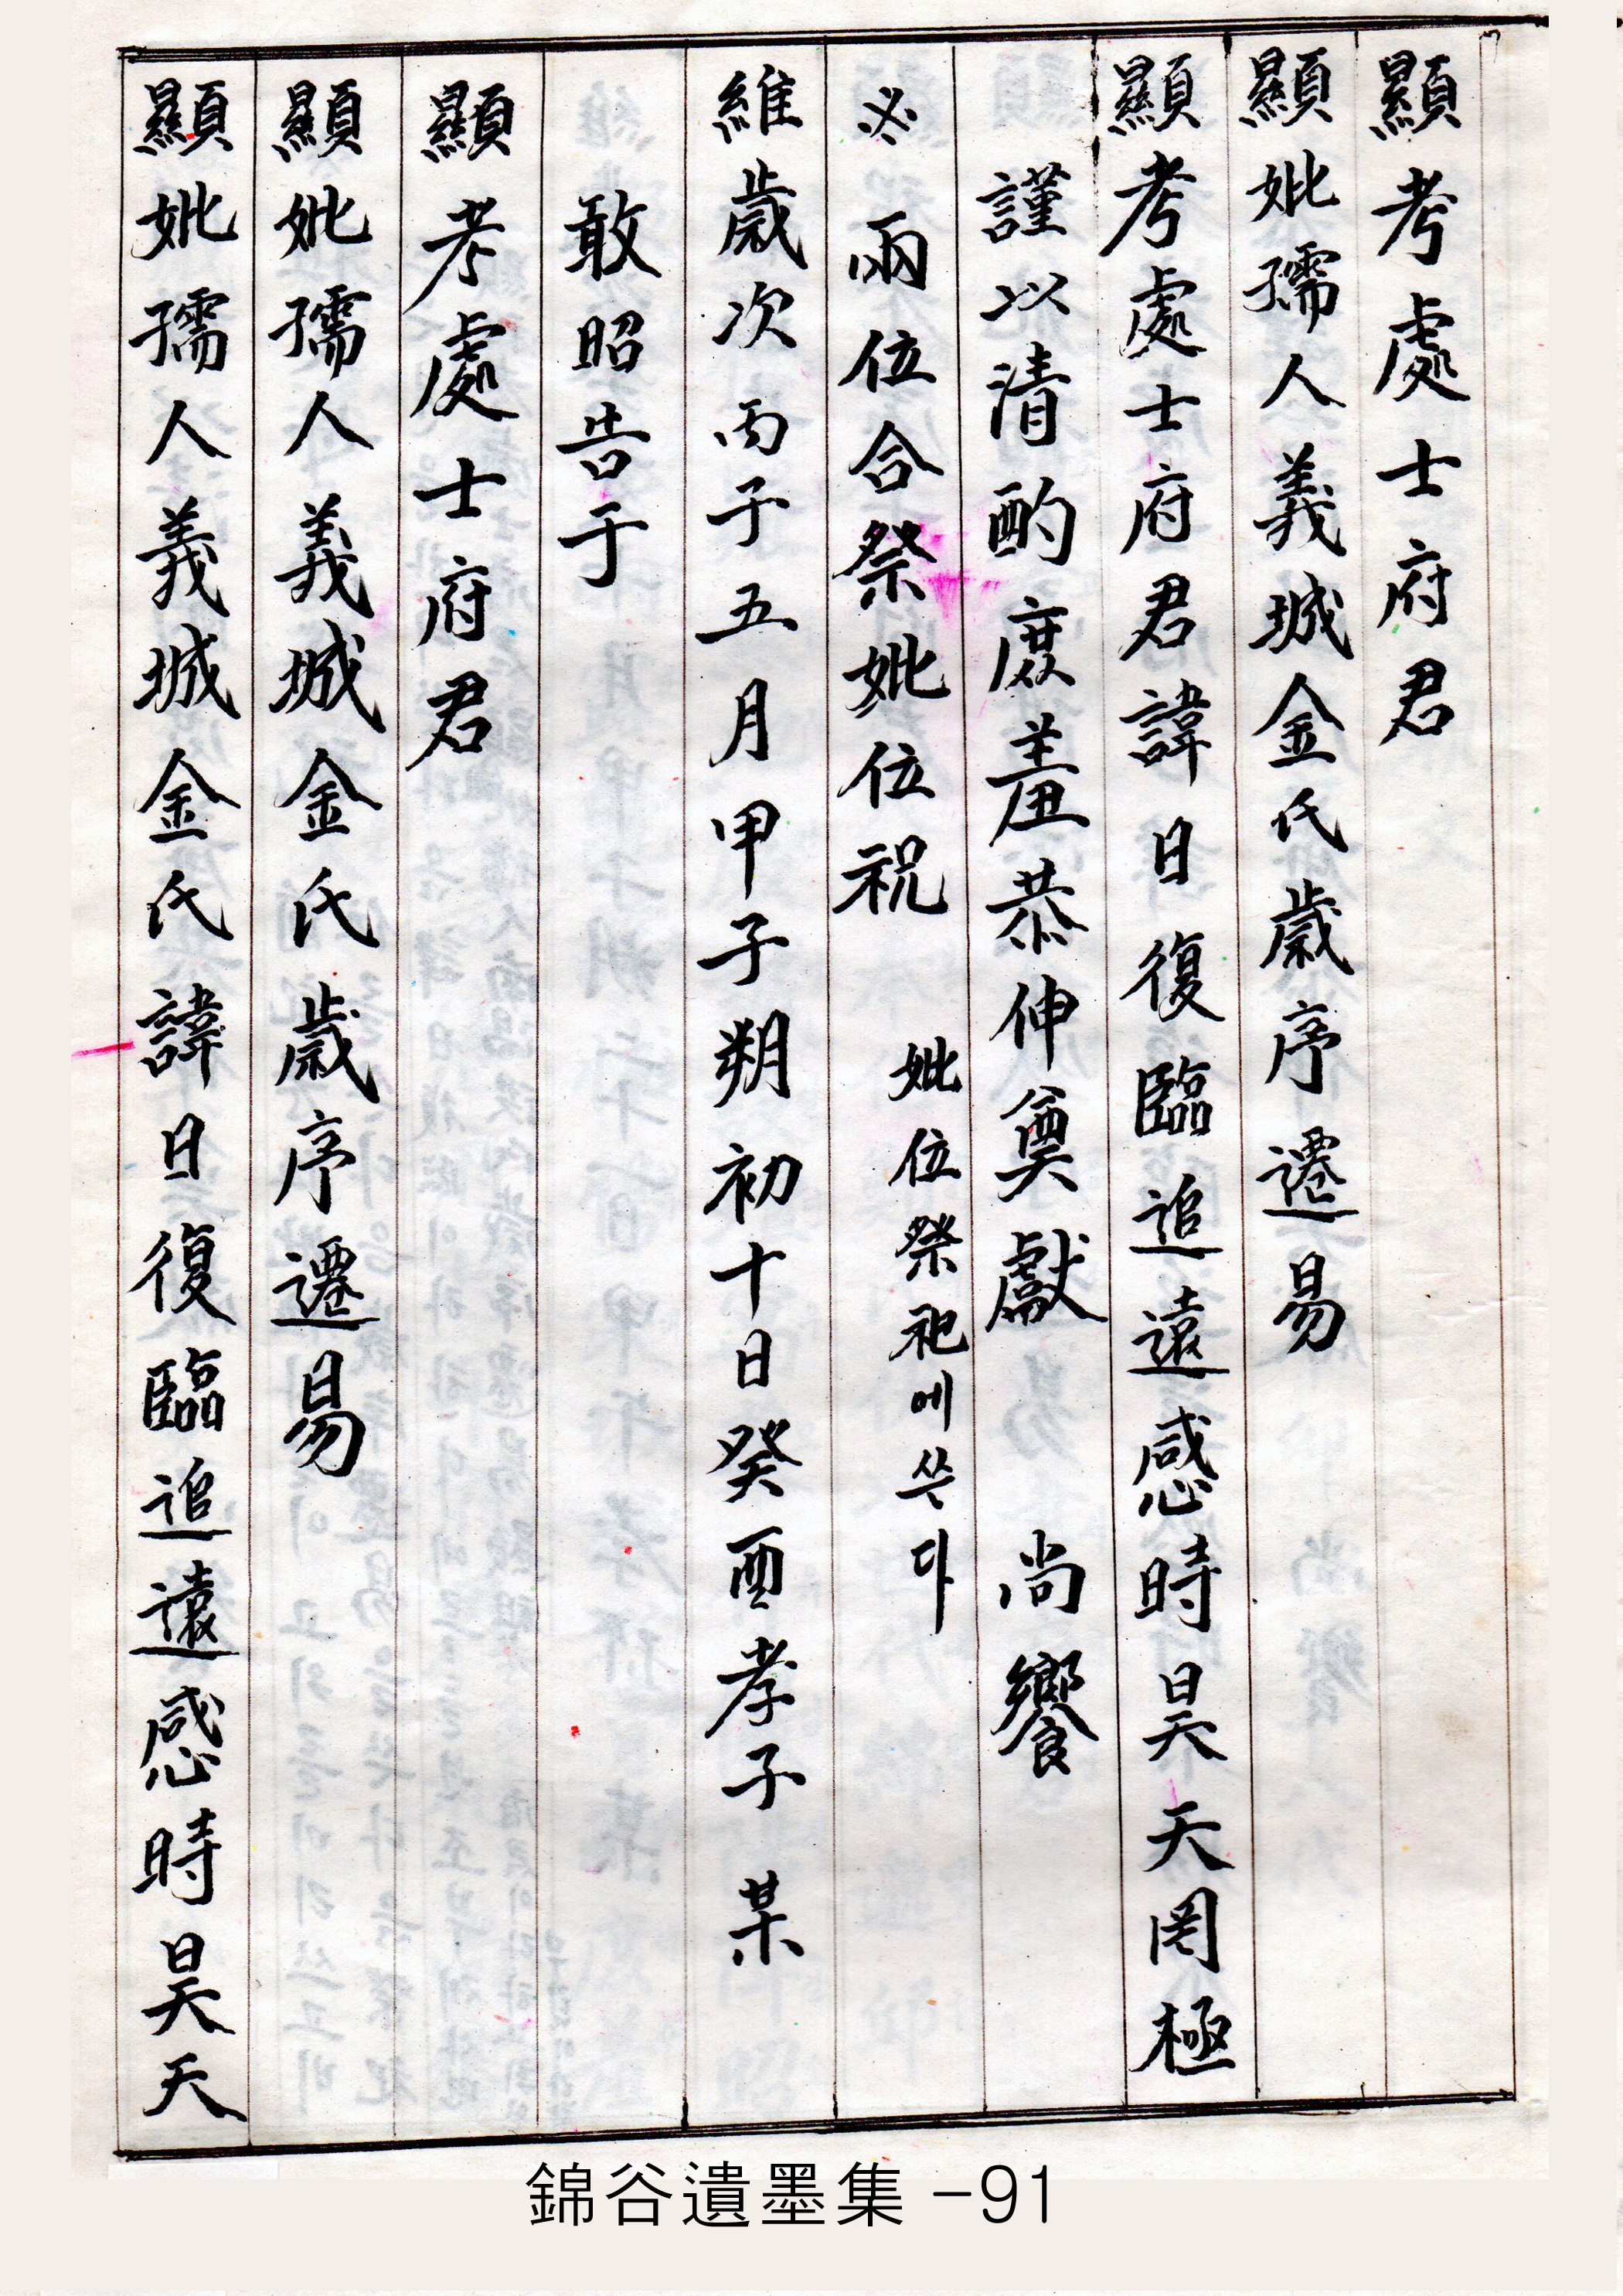 顯考處士府君
顯妣孺人義城金氏歲序遷易
顯考處士府君諱日復臨追遠感時昊天罔極
謹以清酌庶羞恭伸奠獻 尚饗
※ 兩位合祭妣位祝 妣位祭祀에쓴다
維歲次丙子五月甲子朔初十日癸酉孝子 某
敢昭告于
顯考處士府君
顯妣孺人義城金氏歲序遷易
顯妣孺人義城金氏諱日復臨追遠感時昊天
錦谷遺墨集 -91